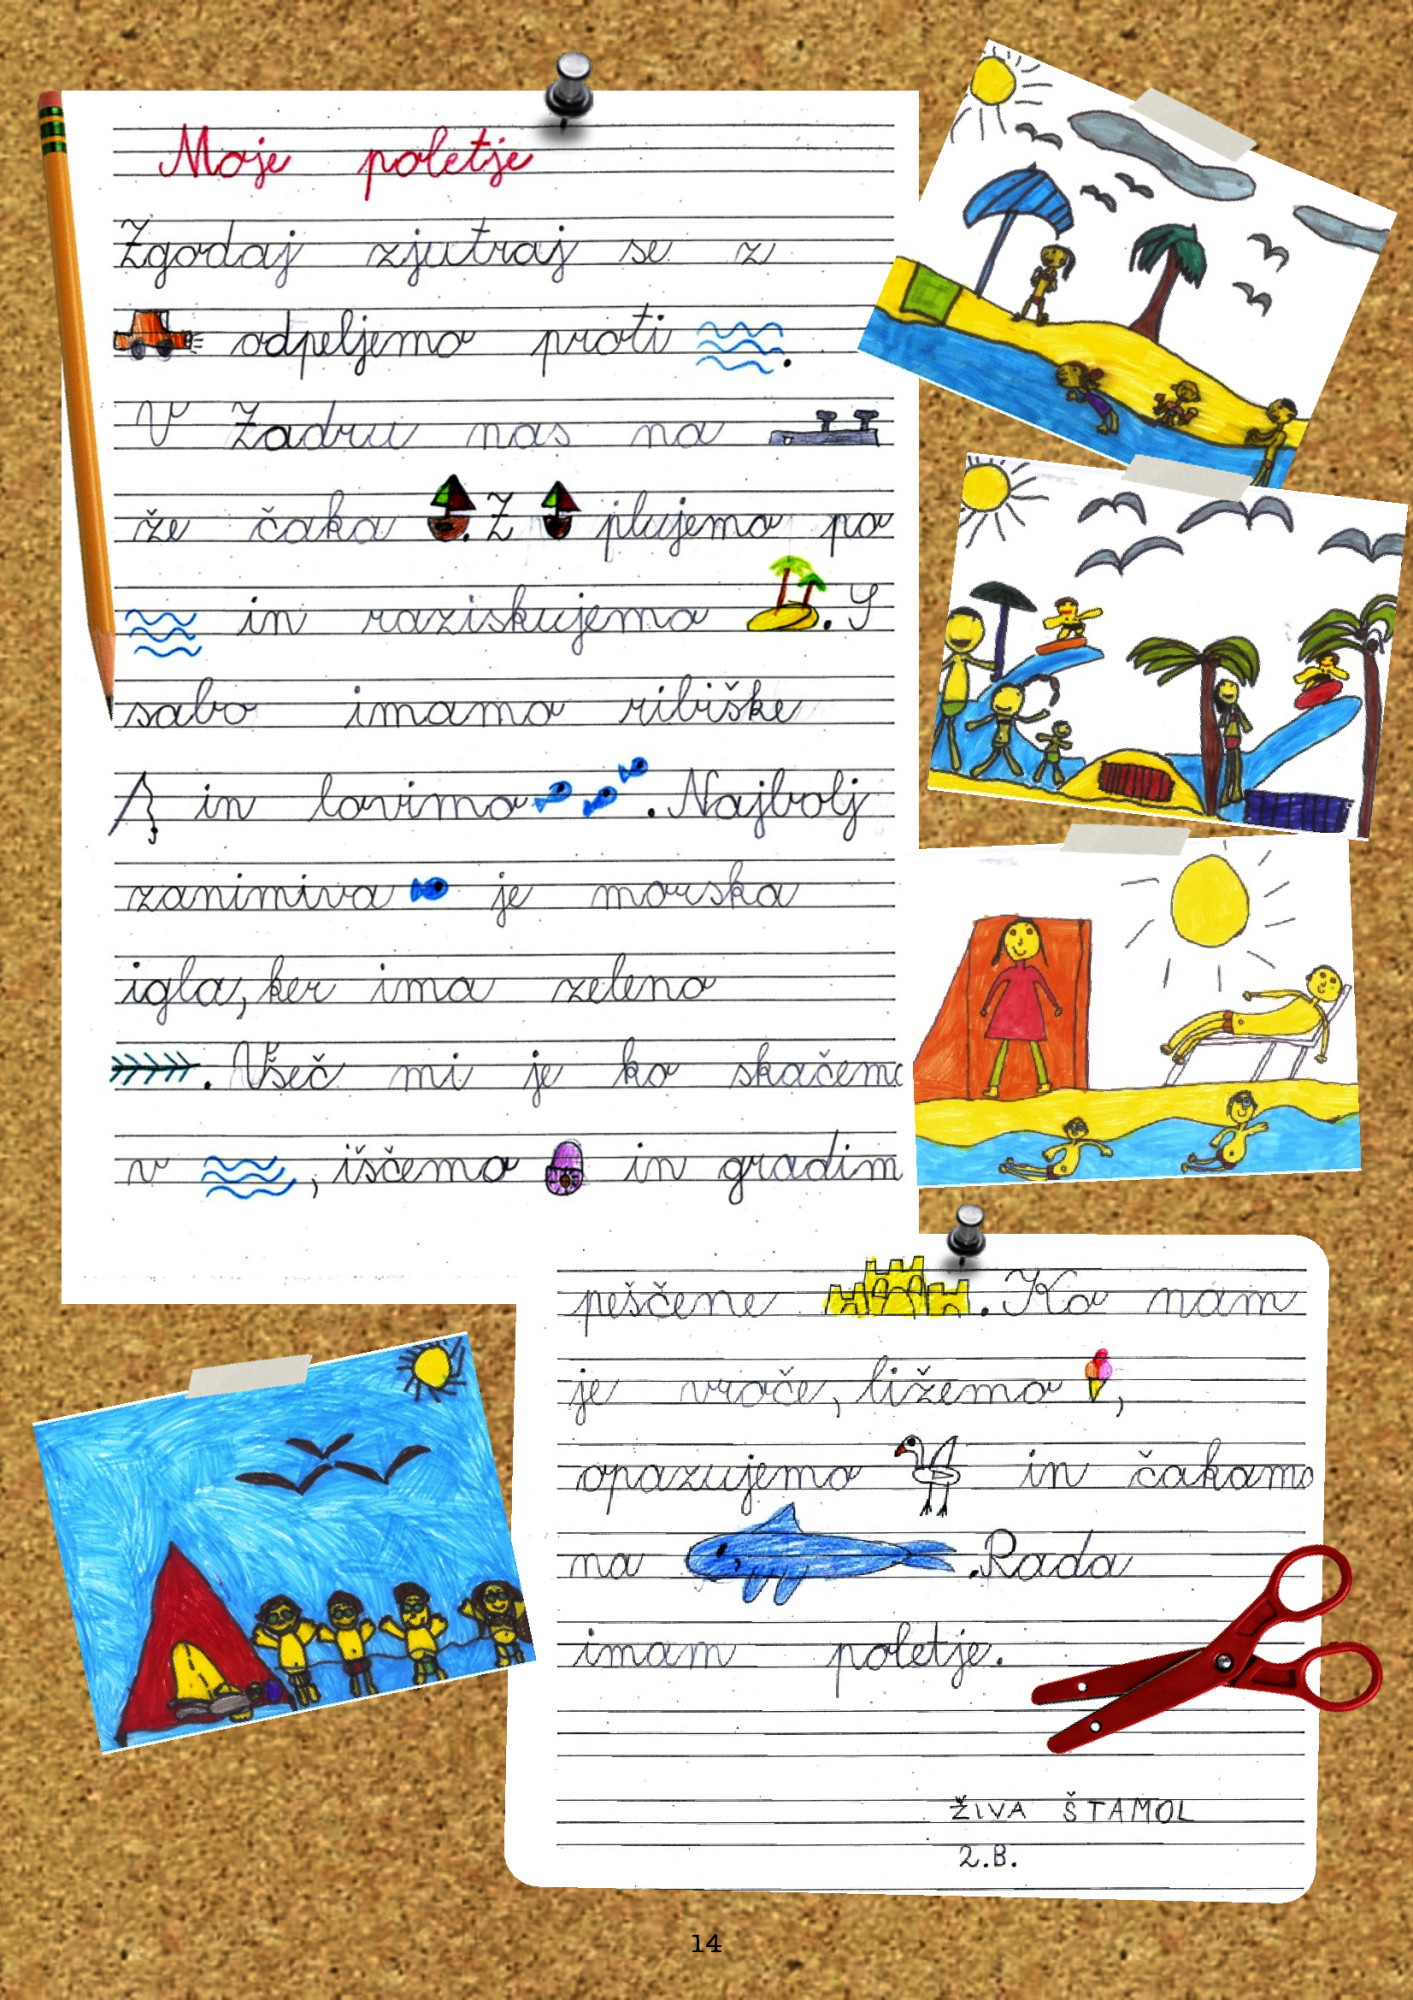 Moje poletje
Zgodaj zjutraj se z
odpeljemo proti .
V Zadru nas na
že čaka . Z plujemo po
in raziskujemo . S
sabo imamo ribiške
in lovimo . Najbolj
zanimiva je morska
igla, ker ima zeleno
. Všeč mi je ko skačemo
v , iščemo in gradim
peščene . Ko nam
je vroče, ližemo ,
opazujemo in čakamo
na . Rada
imam poletje.
ŽIVA ŠTAMOL
2.B.
14